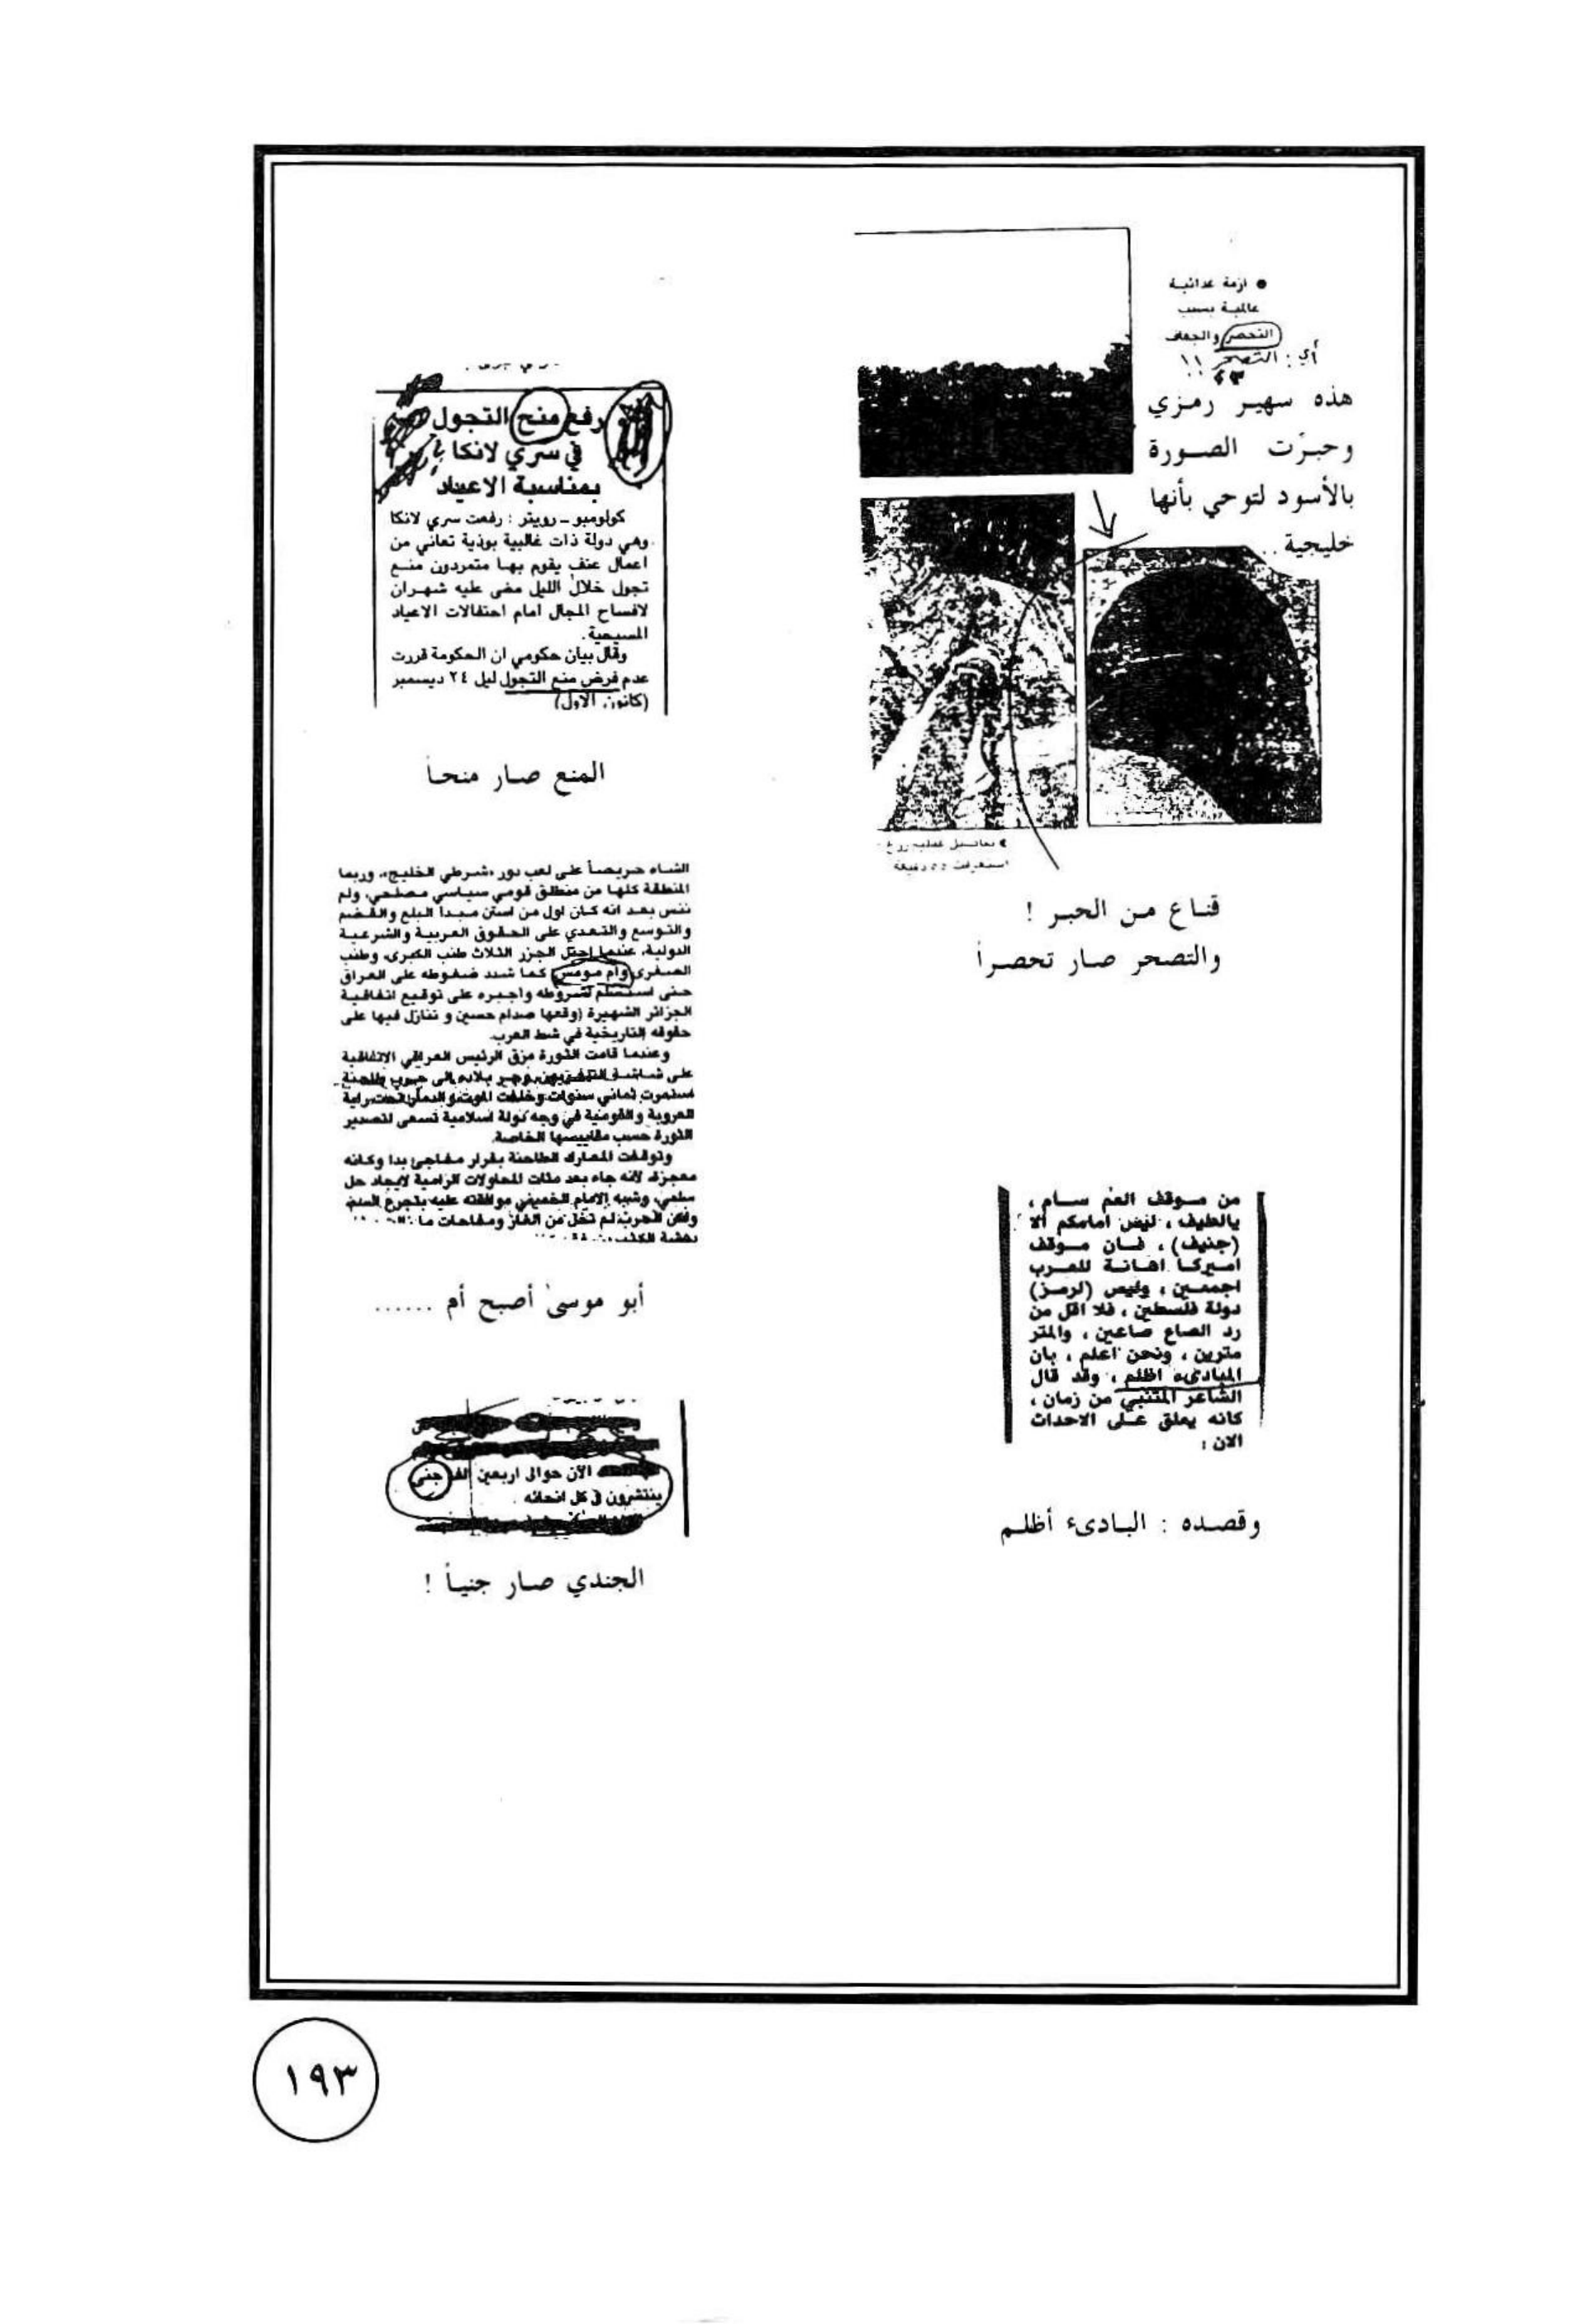 ● ازمة غذائية
عالمية بسبب
التحصر والجفاف
أي : التصحر !!
هذه سهير رمزي
وحبرّت الصورة
بالأسود لتوحي بأنها
خليجية ..
استغرقت ٥٥ دقيقة
قناع من الحبر !
والتصحر صار تحصراً
من موقف العم سام ،
يالطيف ، ليض امامكم الا
(جنيف) ، فان موقف
اميركا اهانة للعرب
اجمعين ، وليس (لرمز)
دولة فلسطين ، فلا اقل من
رد الصاع صاعين ، والمتر
مترين ، ونحن اعلم ، بان
المبادىء اظلم ، وقد قال
الشاعر المتنبي من زمان ،
كانه يعلق على الاحداث
الان :
وقصده : البادىء أظلم
رفع منح التجول
في سري لانكا
بمناسبة الاعياد
كولومبو - رويتر : رفعت سري لانكا
وهي دولة ذات غالبية بوذية تعاني من
اعمال عنف يقوم بها متمردون منع
تجول خلال الليل مضى عليه شهران
لافساح المجال امام احتفالات الاعياد
المسيحية .
وقال بيان حكومي ان الحكومة قررت
عدم فرض منع التجول ليل ٢٤ ديسمبر
(كانون الاول)
المنع صار منحاً
الشاه حريصاً على لعب دور «شرطي الخليج»، وربما
المنطقة كلها من منطلق قومي سياسي مصلحي، ولم
ننس بعد انه كان اول من استن مبدا البلع والقضم
والتوسع والتعدي على الحقوق العربية والشرعية
الدولية، عندما احتل الجزر الثلاث طنب الكبرى، وطنب
الصغرى وام مومس كما شدد ضغوطه على العراق
حتى استسلم لشروطه واجبره على توقيع اتفاقية
الجزائر الشهيرة (وقعها صدام حسين و تنازل فيها على
حقوقه التاريخية في شط العرب.
وعندما قامت الثورة مزق الرئيس العراقي الاتفاقية
على شاشة التلفزيون وجر بلاده الى حروب طاحنة
استمرت ثماني سنوات وخلفت الموت والدمار تحت راية
العروبة والقومية في وجه دولة اسلامية تسعى لتصدير
الثورة حسب مقاييسها الخاصة.
وتوقفت المعارك الطاحنة بقرار مفاجئ بدا وكانه
معجزة، لانه جاء بعد مئات المحاولات الرامية لايجاد حل
سلمي، وشبه الامام الخميني موافقته عليه بتجرع السم،
ولكن الحرب لم تخل من الغاز ومفاجات
أبو موسىٰ أصبح أم ......
الآن حوالى اربعين الف جنى
ينتشرون فى كل انحائه .
الجندي صار جنياً !
١٩٣